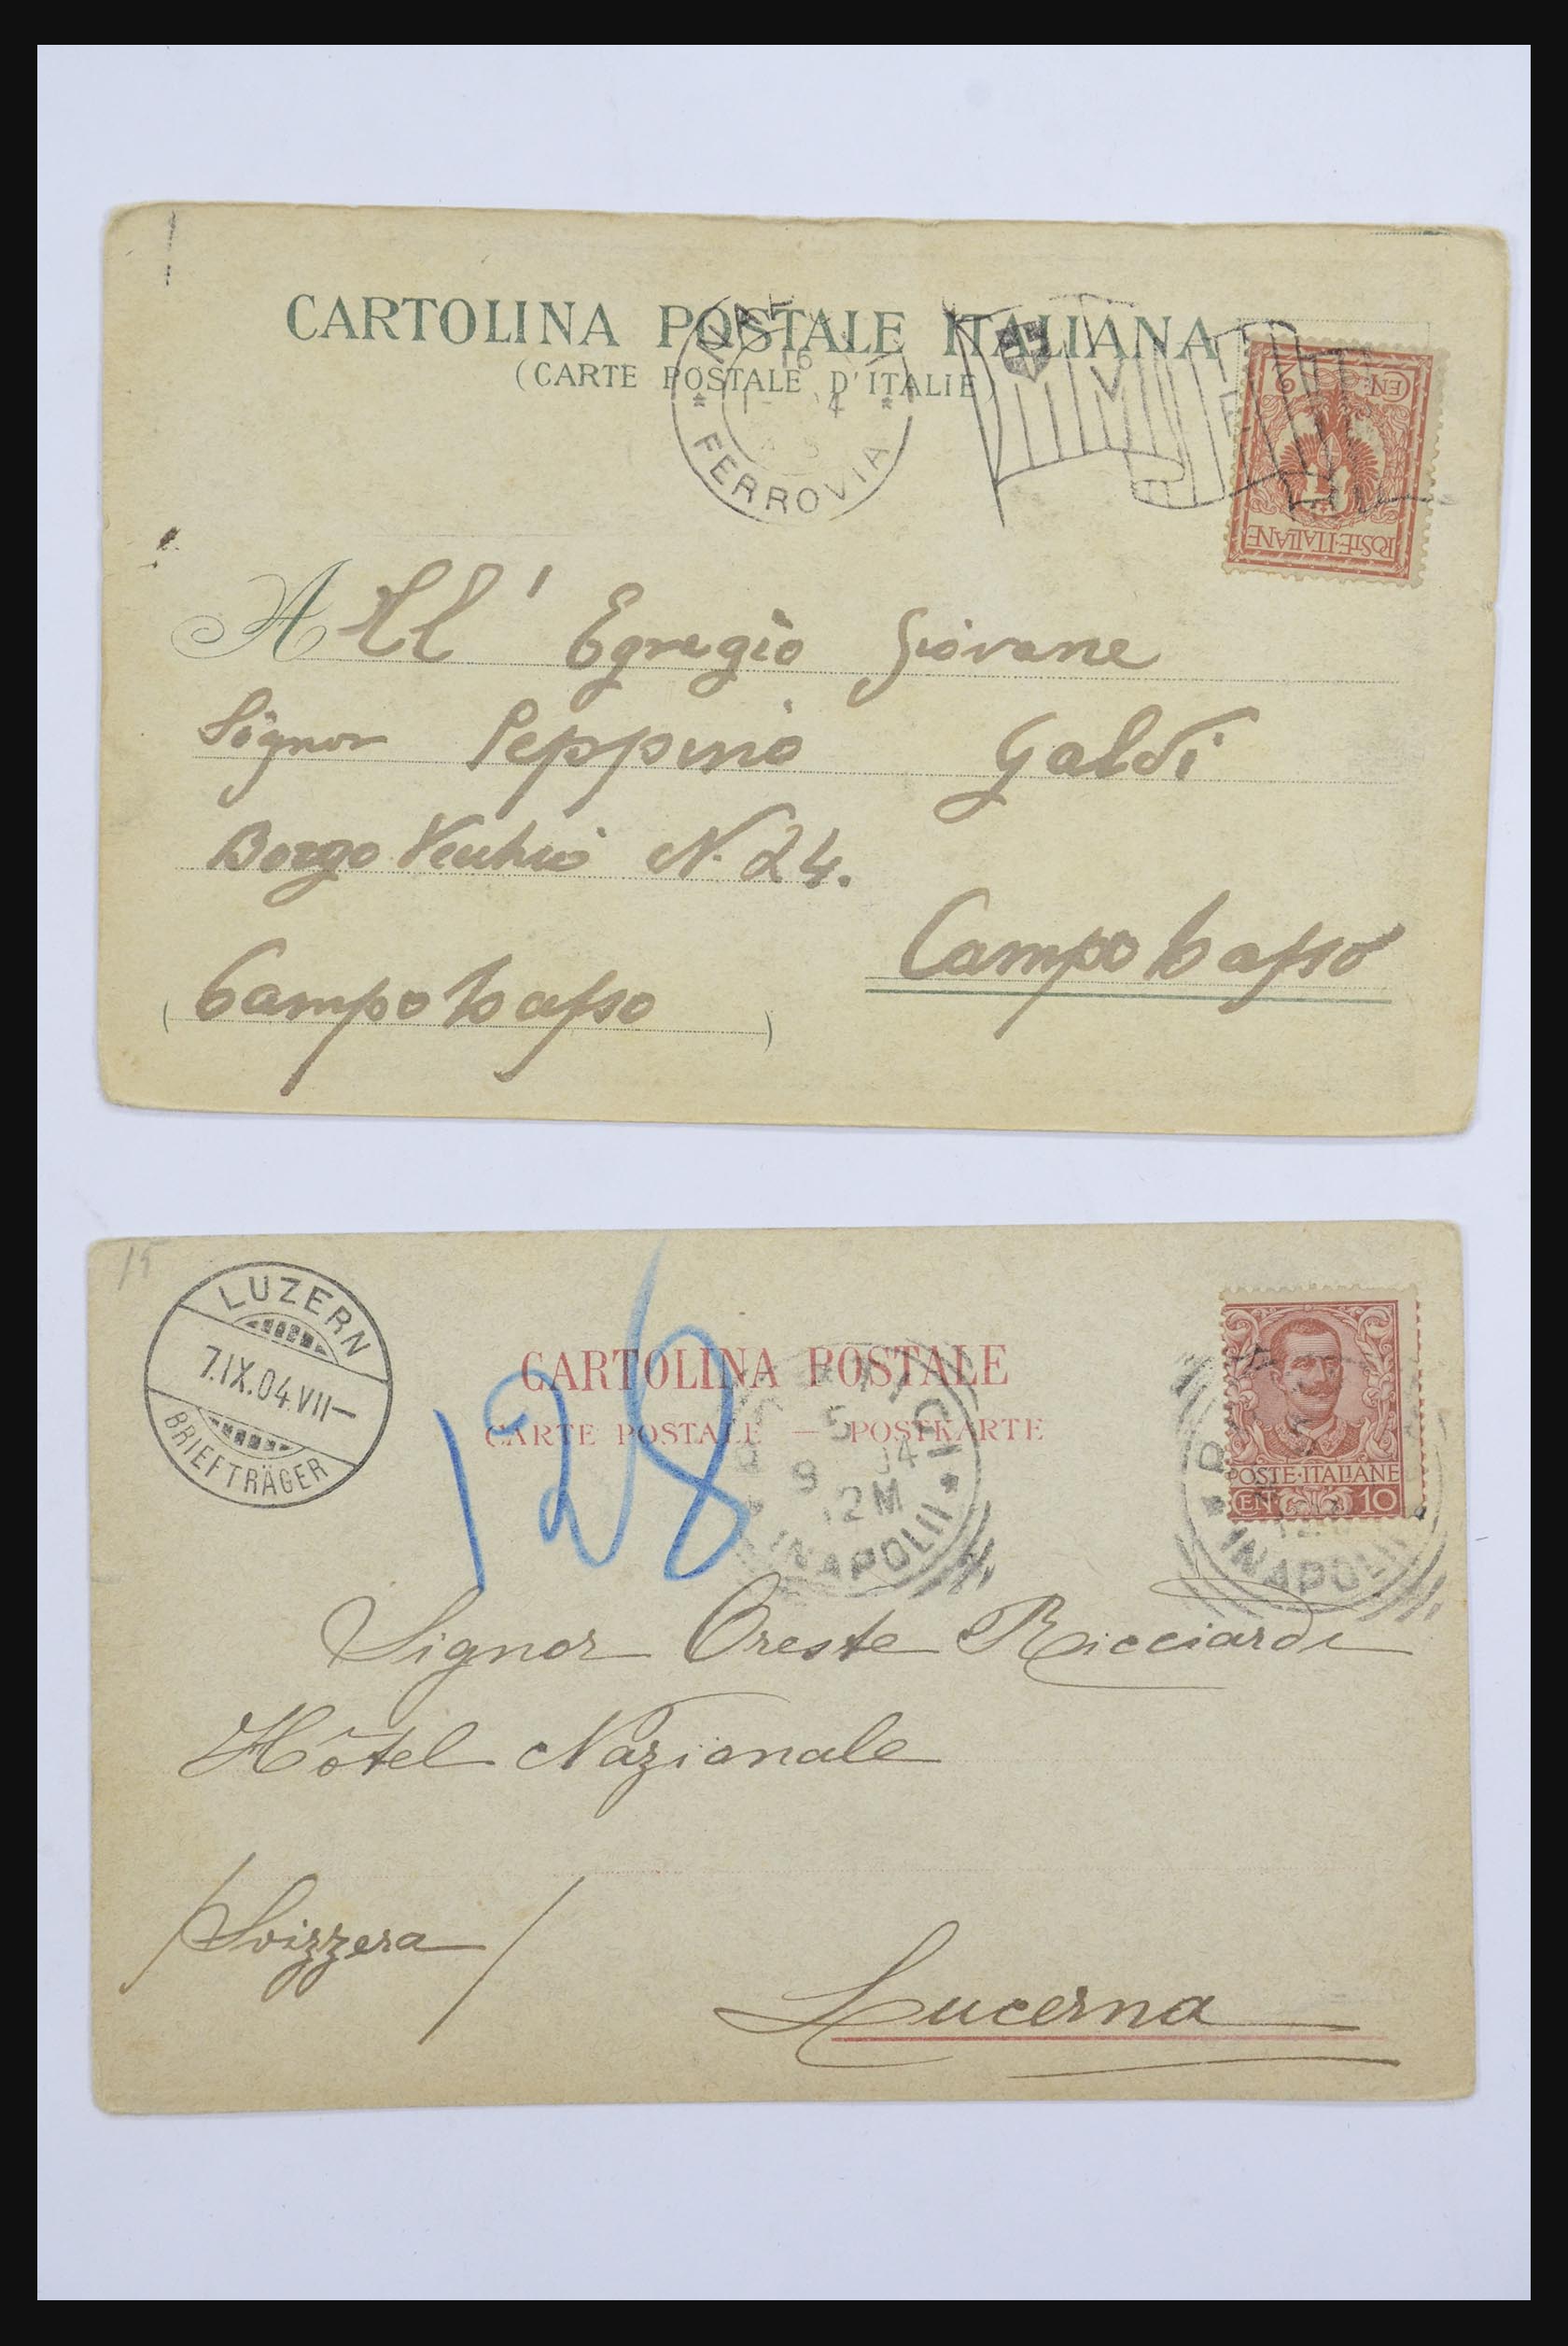 CARTOLINA POSTALE ITALIANA
(CARTE POSTALE D'ITALIE)
16
4
FERROVIA
CEN. 2
POSTE·ITALIANE
All' Egregio Giovane
Signor Peppino Galdi
Borgo Vecchio N. 24.
Campobasso
(Campobasso)
15
LUZERN
7.IX.04.VII–
BRIEFTRÄGER
128
CARTOLINA POSTALE
CARTE POSTALE — POSTKARTE
5
9 04
12M
(NAPOLI)
POSTE·ITALIANE
CEN. 10
(NAPOLI)
Signor Oreste Ricciardi
Hôtel Nazionale
/Svizzera/
Lucerna